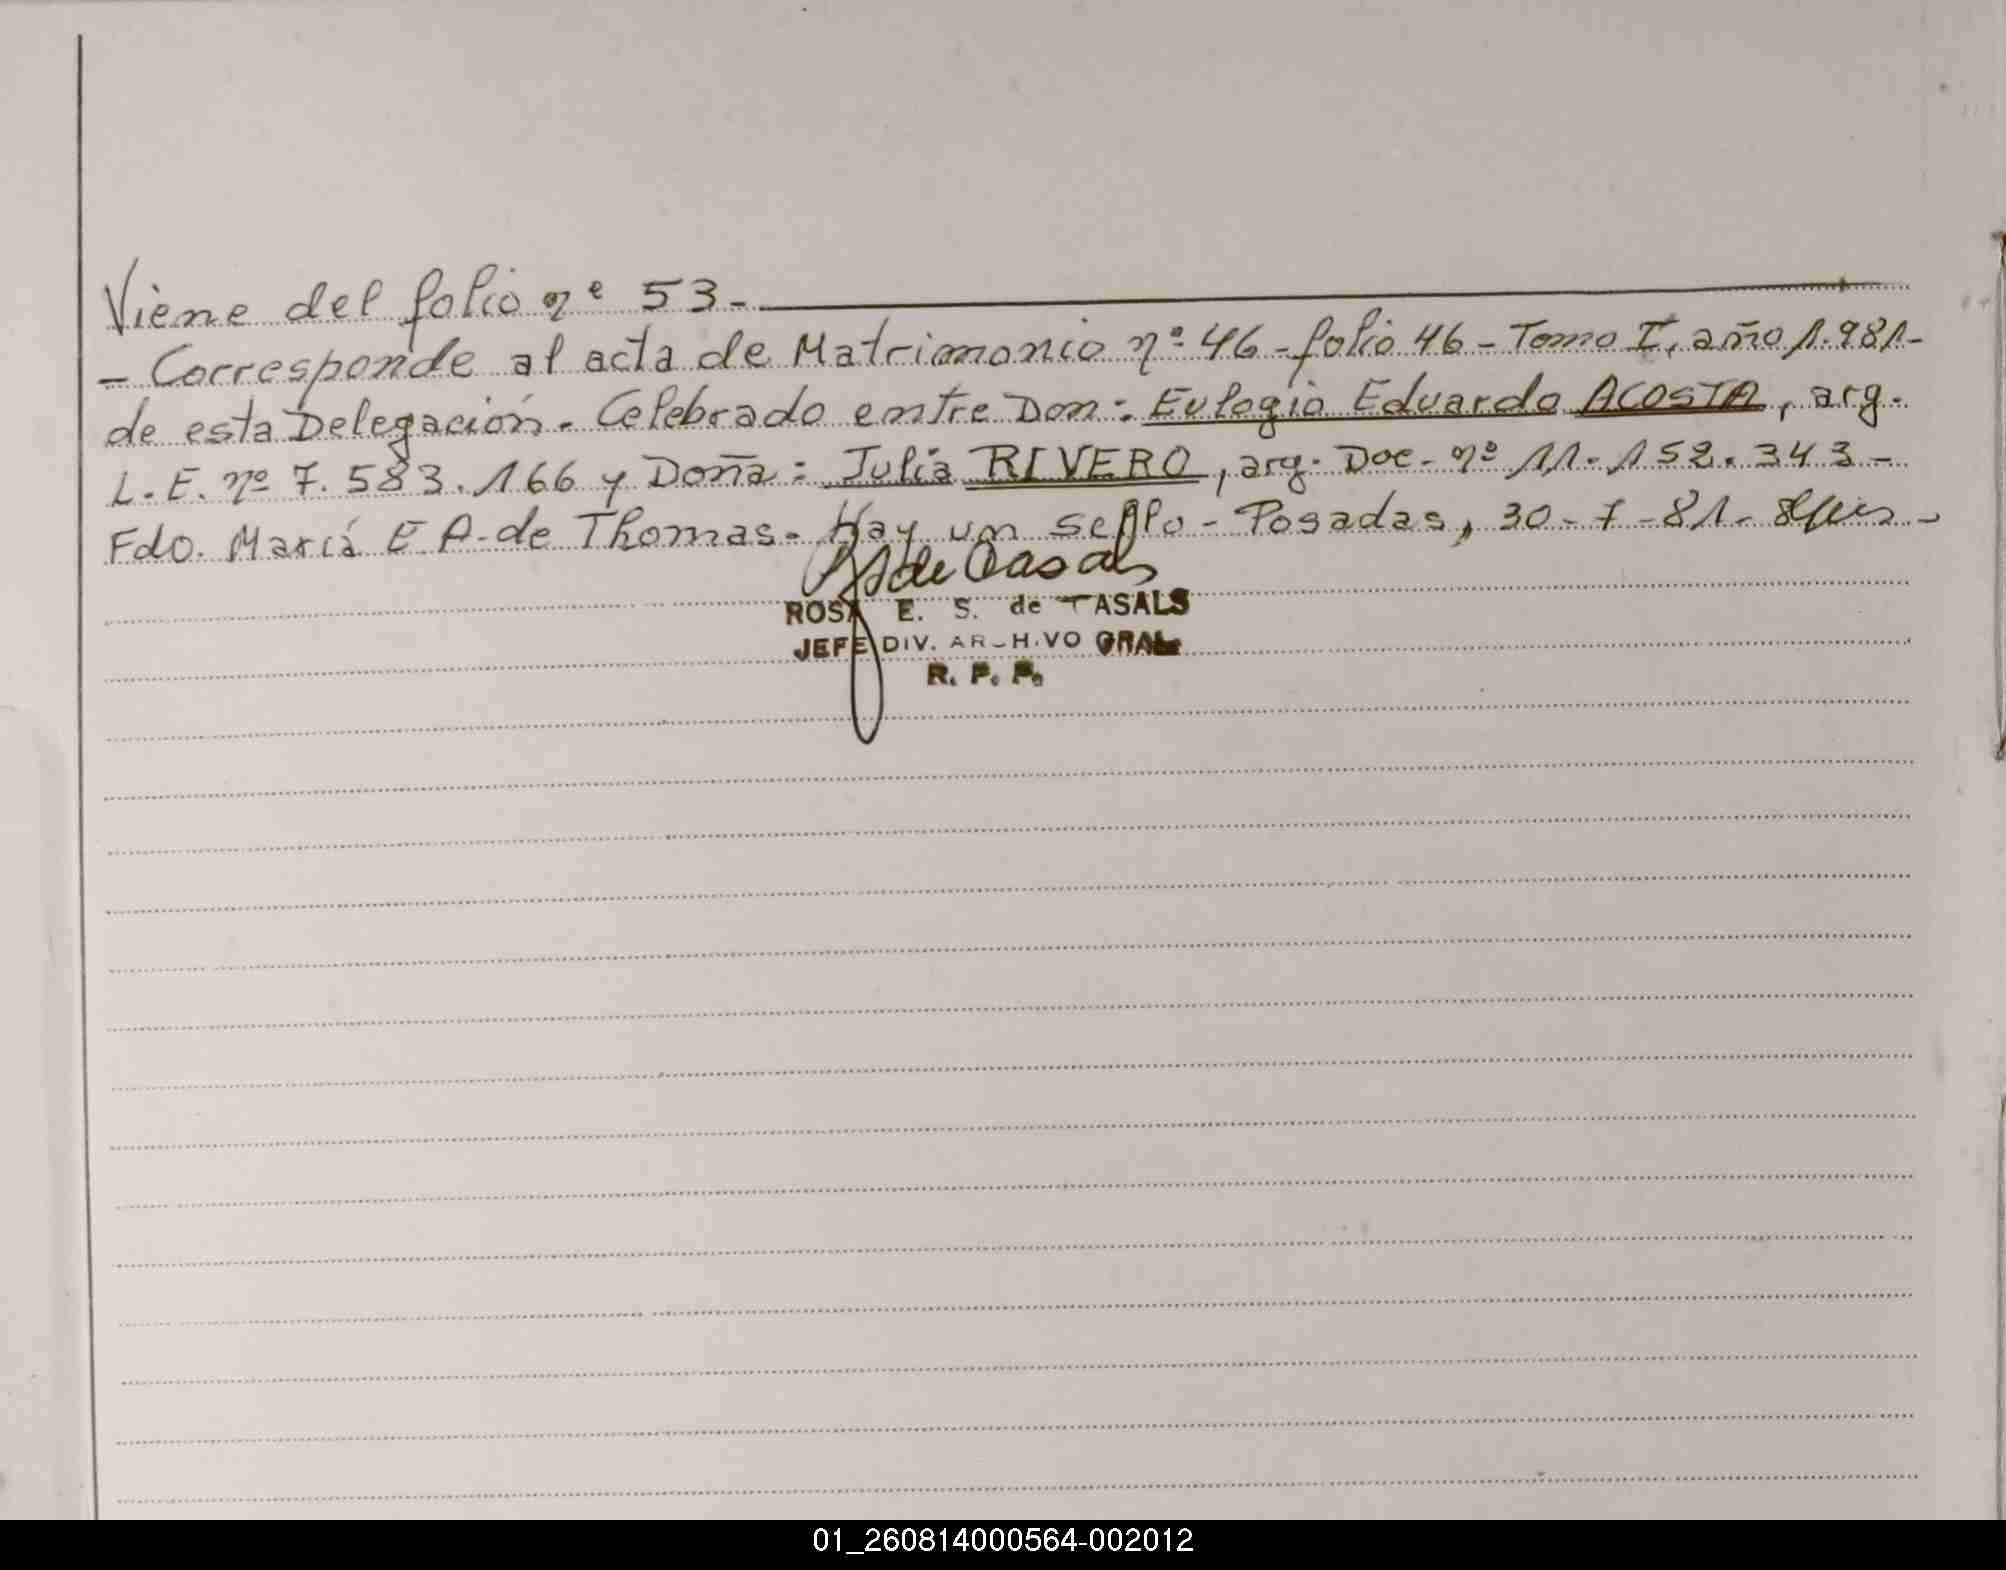 Viene del folio nº 53.-
- Corresponde al acta de Matrimonio nº 46 - folio 46 - Tomo I, año 1.981-
de esta Delegación. Celebrado entre Don: Eulogio Eduardo ACOSTA, arg.
L.E. nº 7.583.166 y Doña: Julia RIVERO, arg. Doc. nº 11.152.343-
Fdo. María E A. de Thomas. Hay un sello - Posadas, 30-7-81-
de Casals
ROSA E. S. de CASALS
JEFE DIV. ARCHIVO GRAL
R. P. P.
01_260814000564-002012